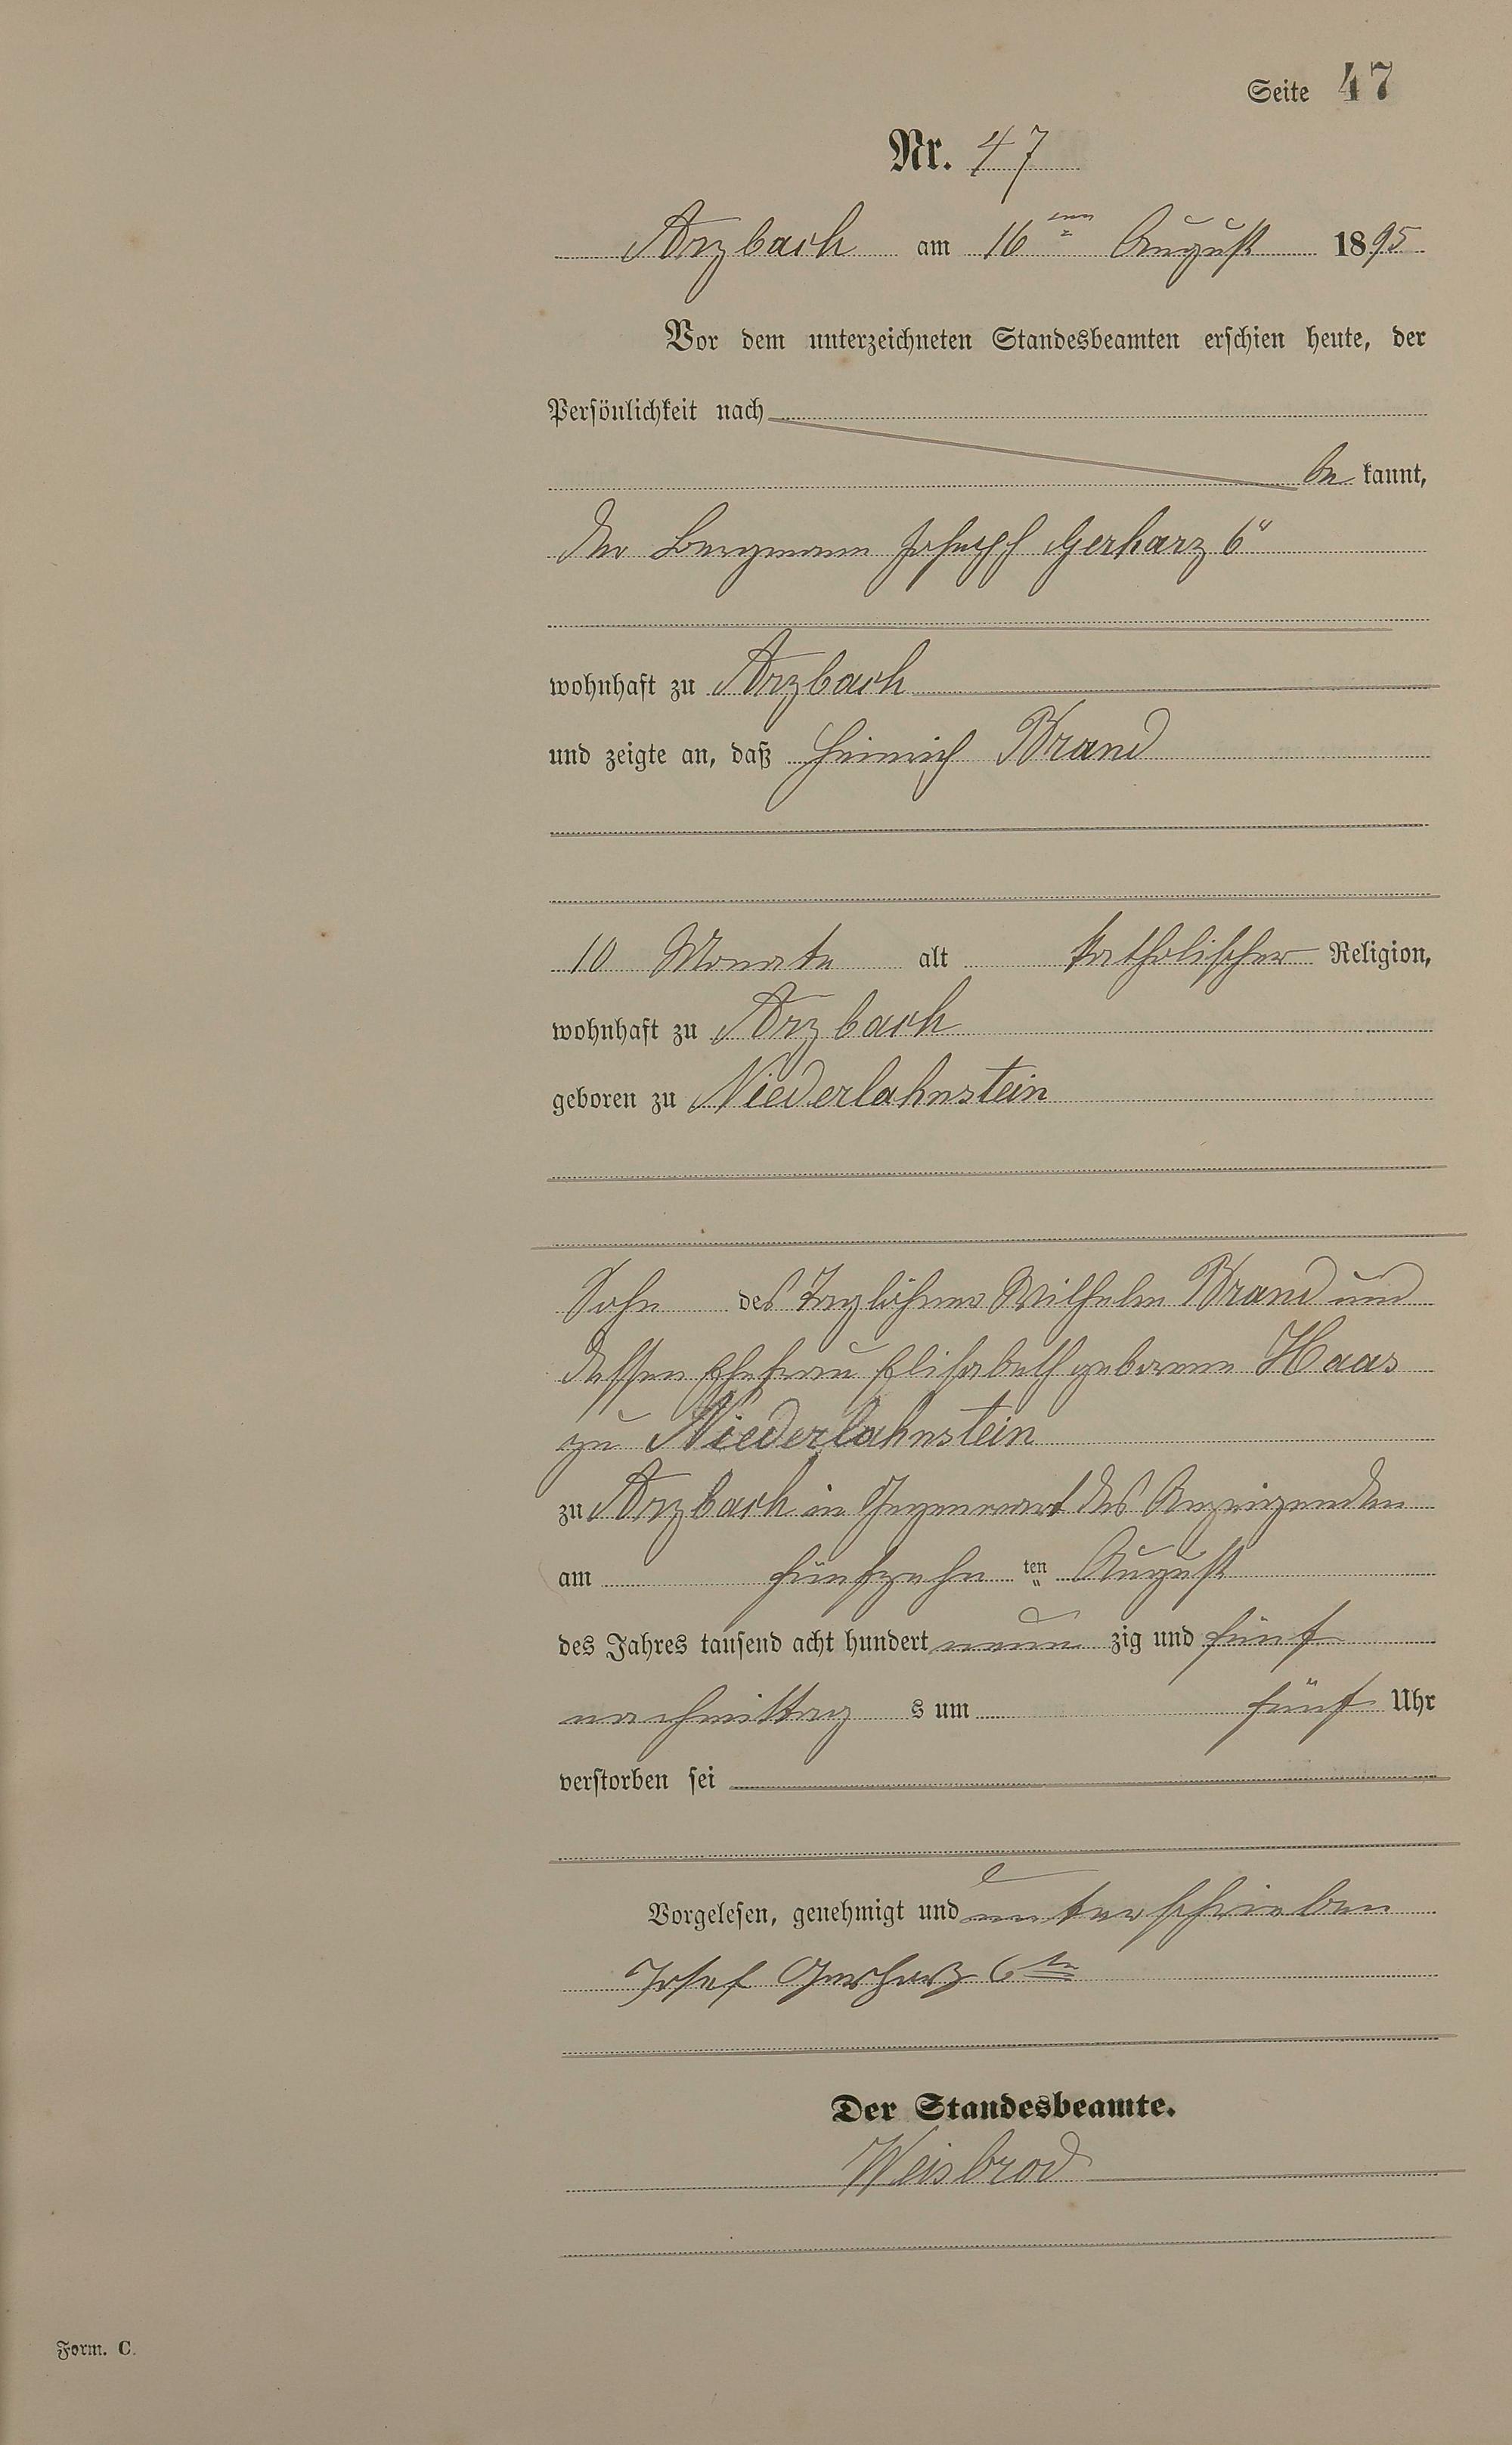 Seite 47
Nr. 47
Arzbach am 16ten August 1895
Vor dem unterzeichneten Standesbeamten erschien heute, der
Persönlichkeit nach
be kannt,
der Bergmann Joseph Gerharz 6"
wohnhaft zu Arzbach
und zeigte an, daß Heinrich Brand
10 Monate alt katholischer Religion,
wohnhaft zu Arzbach
geboren zu Niederlahnstein
Sohn des Taglöhners Wilhelm Brand und
dessen Ehefrau Elisabeth geborene Haas
zu Niederlahnstein
zu Arzbach in Gegenwart des Anzeigenden
am fünfzehn ten August
des Jahres tausend acht hundert neun zig und fünf
nachmittag s um fünf Uhr
verstorben sei
Vorgelesen, genehmigt und unterschrieben
Josef Gerharz 6te
Der Standesbeamte.
Weisbrod
Form. C.